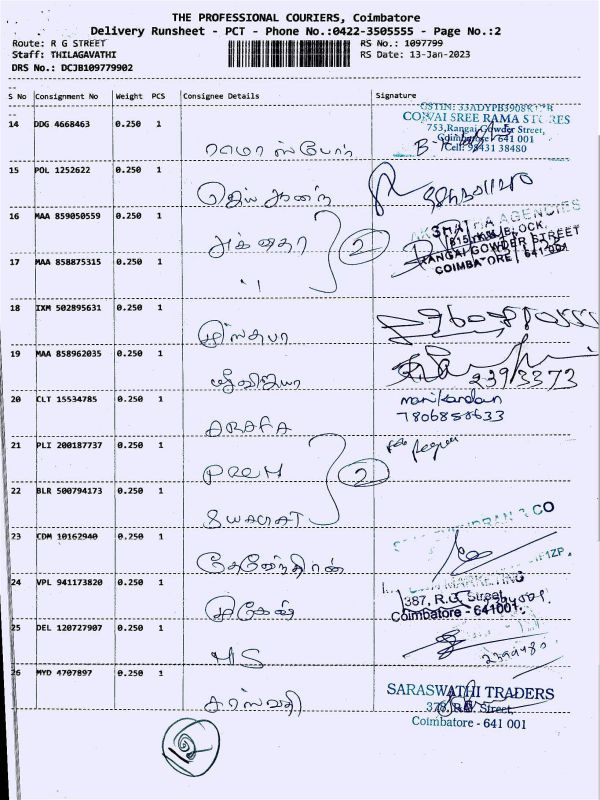 THE PROFESSIONAL COURIERS, Coimbatore
Delivery Runsheet - PCT - Phone No.:0422-3505555 - Page No.:2
Route: R G STREET
RS No.: 1097799
Staff: THILAGAVATHI
RS Date: 13-Jan-2023
DRS No.: DCJB109779902
S No Consignment No Weight PCS Consignee Details Signature
14 DDG 4668463 0.250 1
COVAI SREE RAMA STORES
753,Rangai Gowder Street,
Coimbatore - 641 001
Cell: 98431 38480
15 POL 1252622 0.250 1
16 MAA 859050559 0.250 1
2
AGENCIES
BLOCK.
RANGAI GOWDER STREET
COIMBATORE 641 001
17 MAA 858875315 0.250 1
"
18 IXM 502895631 0.250 1
முஸ்தபா
19 MAA 858962035 0.250 1
ஸ்ரீவிஜயா
2393373
20 CLT 15534785 0.250 1
ARAFA
manikandan
7806858633
21 PLI 200187737 0.250 1
PREM
2
22 BLR 500794173 0.250 1
SWAGAT
23 CDM 10162940 0.250 1
& CO
24 VPL 941173820 0.250 1
முகேஷ்
MARKETING
387, R.G. Street,
Coimbatore - 641001.
25 DEL 120727907 0.250 1
MS
26 MYD 4707897 0.250 1
சரஸ்வதி
SARASWATHI TRADERS
378, R.G. Street,
Coimbatore - 641 001